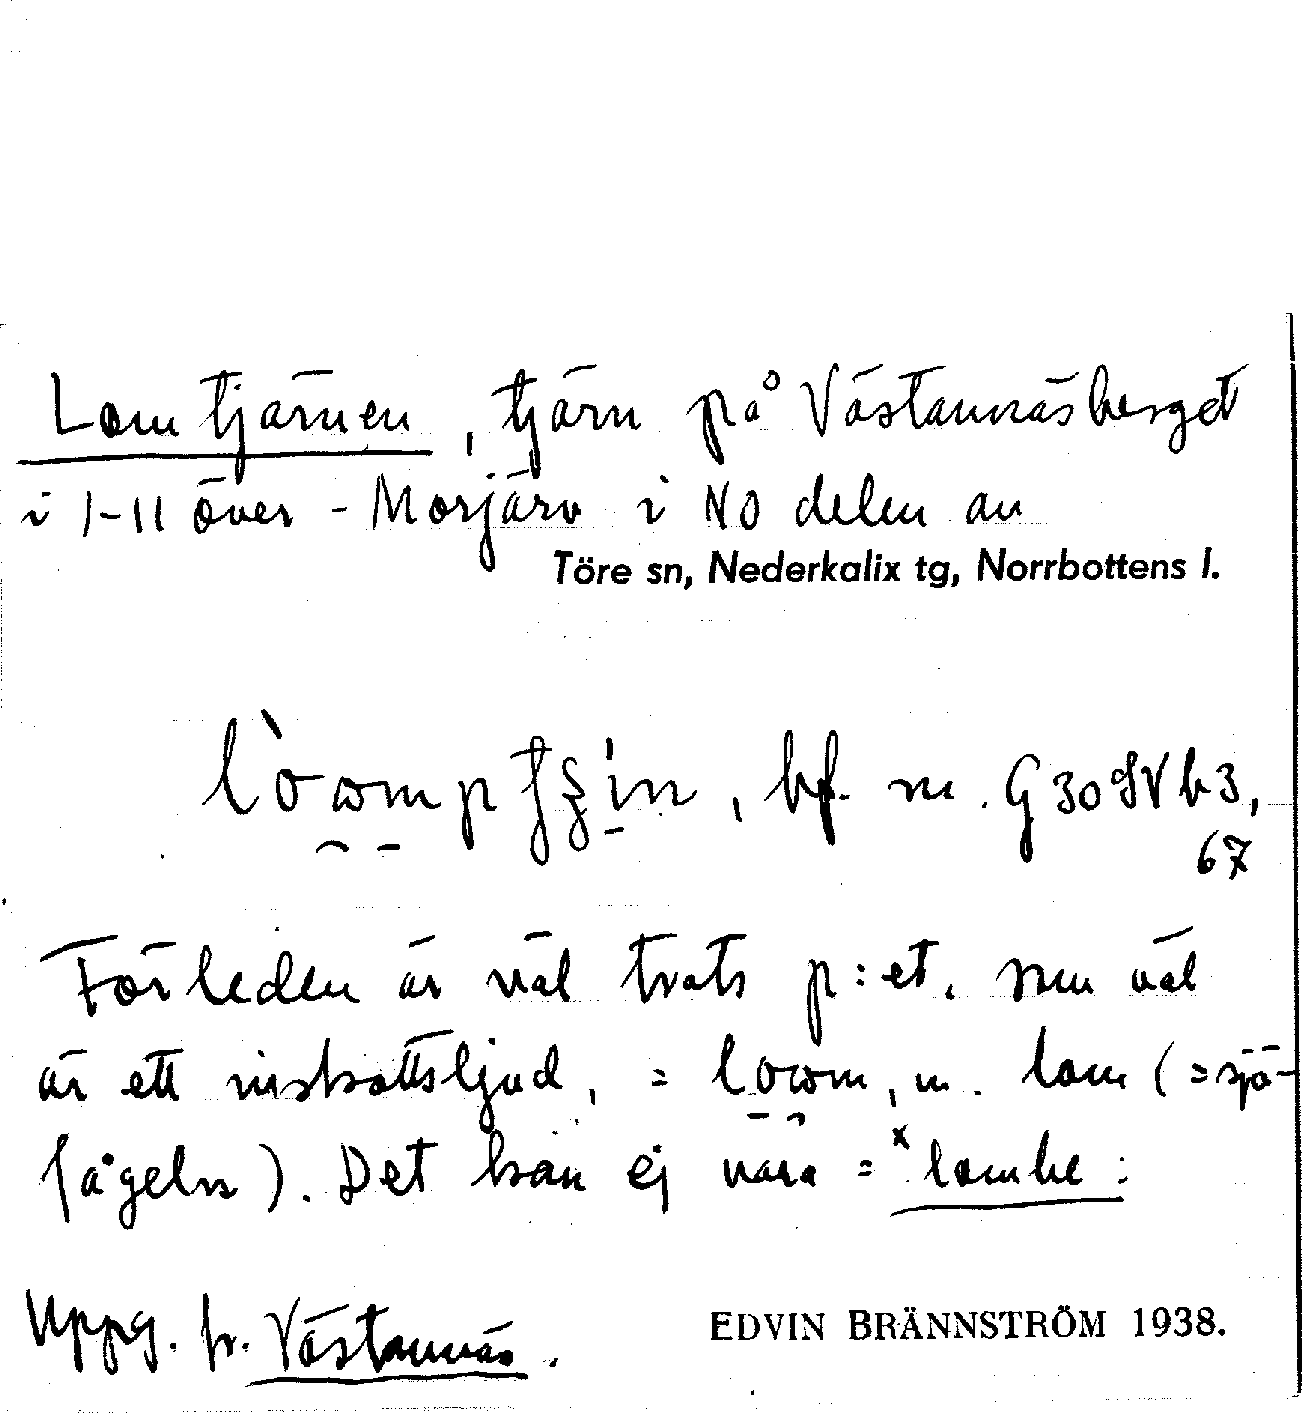 Lomtjärnen, tjärn på Västannäsberget
i 1-11 över - Morjärv i NO delen av
Töre sn, Nederkalix tg, Norrbottens l.
bf. m. G 30 SV b 3,
67
Förleden är väl trots p:et, som väl
är ett inskottsljud, = lowm, m. lom (= sjö-
fågeln). Det kan ej vara = ˣlombe:
Uppg. fr. Västannäs.
EDVIN BRÄNNSTRÖM 1938.